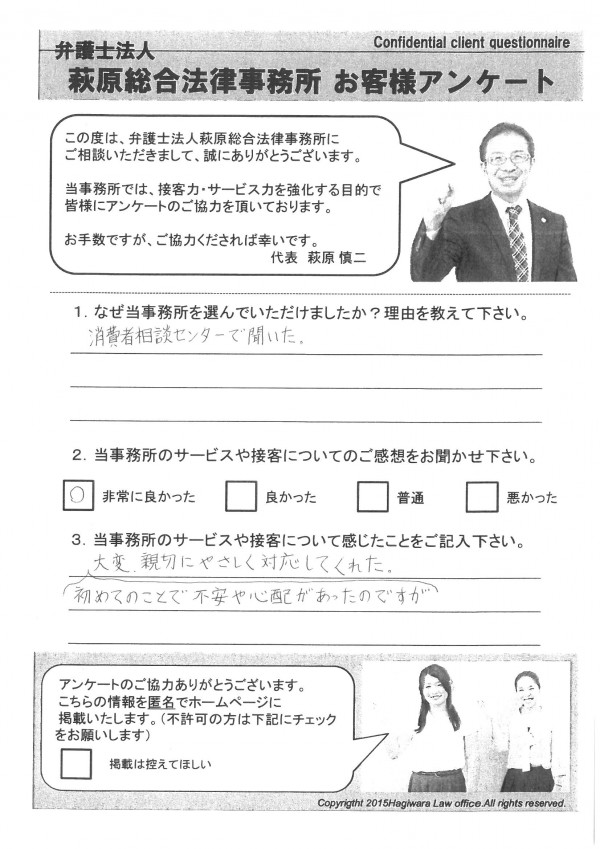 Confidential client questionnaire
弁護士法人
萩原総合法律事務所 お客様アンケート
この度は、弁護士法人萩原総合法律事務所に
ご相談いただきまして、誠にありがとうございます。
当事務所では、接客力・サービス力を強化する目的で
皆様にアンケートのご協力を頂いております。
お手数ですが、ご協力くだされば幸いです。
代表 萩原 慎二
1. なぜ当事務所を選んでいただけましたか?理由を教えて下さい。
消費者相談センターで聞いた。
2. 当事務所のサービスや接客についてのご感想をお聞かせ下さい。
○ 非常に良かった 良かった 普通 悪かった
3. 当事務所のサービスや接客について感じたことをご記入下さい。
大変、親切にやさしく対応してくれた。
初めてのことで不安や心配があったのですが
アンケートのご協力ありがとうございます。
こちらの情報を匿名でホームページに
掲載いたします。(不許可の方は下記にチェック
をお願いします)
掲載は控えてほしい
Copyrigtht 2015Hagiwara Law office.All rights reserved.